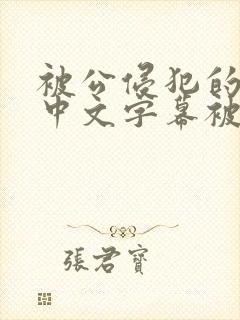 被公侵犯的
中文字幕被
張君寶